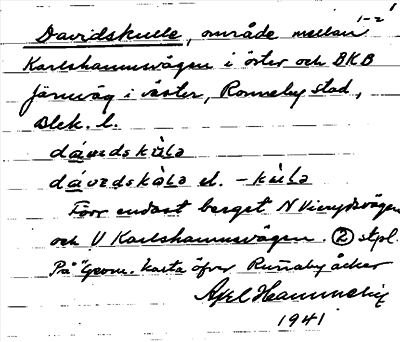 1-2
Davidskulle, område mellan
Karlshamnsvägen i öster och BKB
järnväg i väster, Ronneby stad,
Blek. l.
dávıdskùla
dávedskàLa el. -kùLa
Förr endast berget N Vierydsvägen
och V Karlshamnsvägen. 2 stpl.
På "Geom. karta öfver Runnaby åcker
Axel
1941